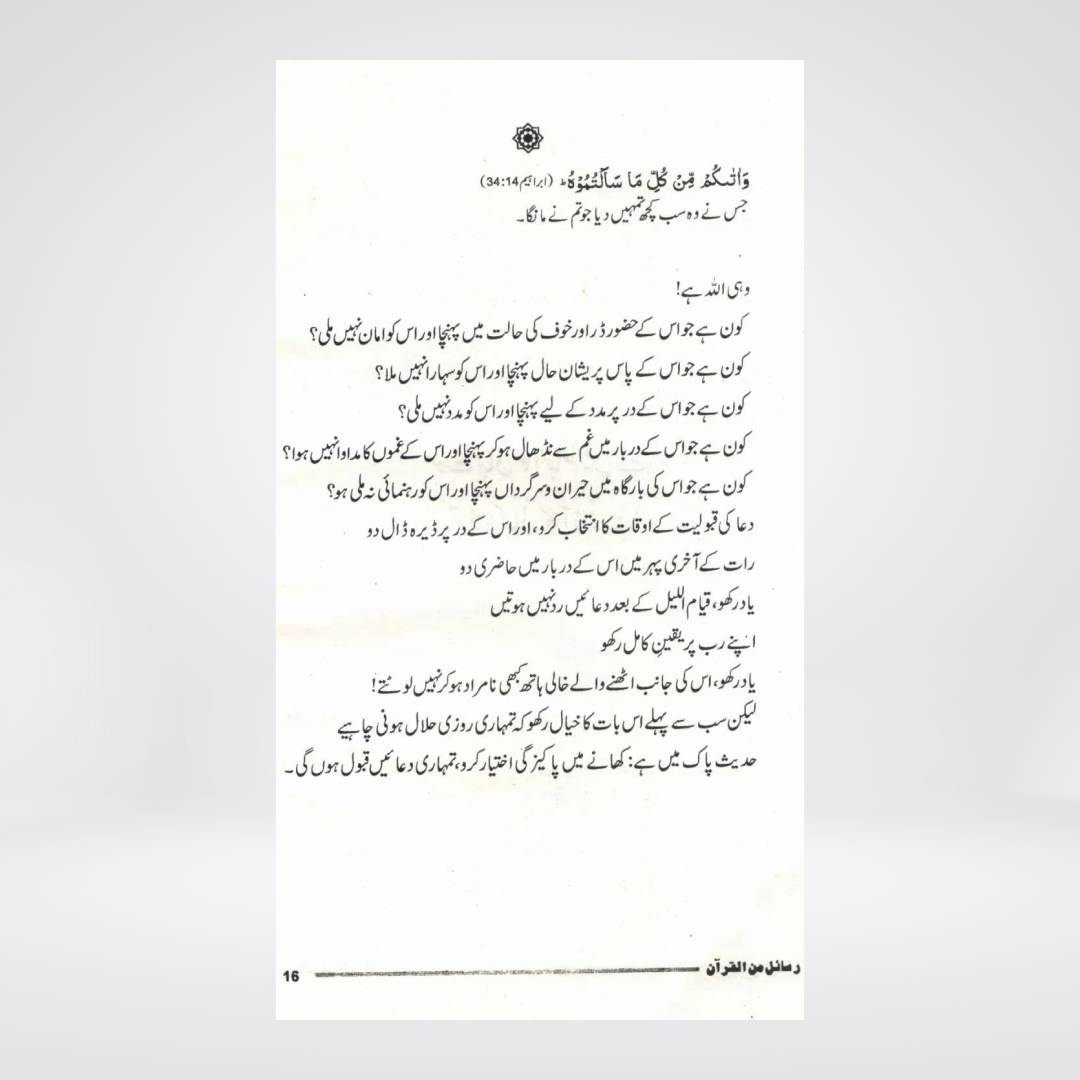 وَاٰتٰىكُمۡ مِّنۡ كُلِّ مَا سَاَلۡتُمُوۡهُ‌ؕ (ابراہیم34:14)
جس نے وہ سب کچھ تمہیں دیا جو تم نے مانگا۔
وہی اللہ ہے!
کون ہے جو اس کے حضور ڈر اور خوف کی حالت میں پہنچا اور اس کو امان نہیں ملی؟
کون ہے جو اس کے پاس پریشان حال پہنچا اور اس کو سہارا نہیں ملا؟
کون ہے جو اس کے در پر مدد کے لیے پہنچا اور اس کو مدد نہیں ملی؟
کون ہے جو اس کے دربار میں غم سے نڈھال ہو کر پہنچا اور اس کے غموں کا مداوا نہیں ہوا؟
کون ہے جو اس کی بارگاہ میں حیران و سرگرداں پہنچا اور اس کو رہنمائی نہ ملی ہو؟
دعا کی قبولیت کے اوقات کا انتخاب کرو، اور اس کے در پر ڈیرہ ڈال دو
رات کے آخری پہر میں اس کے دربار میں حاضری دو
یاد رکھو، قیام اللیل کے بعد دعائیں رد نہیں ہوتیں
اپنے رب پر یقینِ کامل رکھو
یاد رکھو، اس کی جانب اٹھنے والے خالی ہاتھ کبھی نامراد ہو کر نہیں لوٹتے!
لیکن سب سے پہلے اس بات کا خیال رکھو کہ تمہاری روزی حلال ہونی چاہیے
حدیث پاک میں ہے: کھانے میں پاکیزگی اختیار کرو، تمہاری دعائیں قبول ہوں گی۔
رسائل من القرآن
16